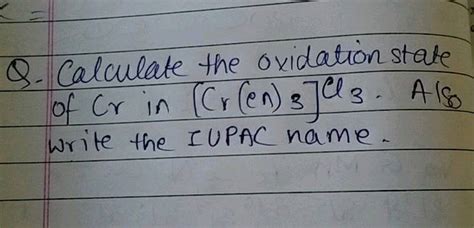 Q. Calculate the oxidation state
of Cr in [Cr(en)3]Cl3. Also
write the IUPAC name.